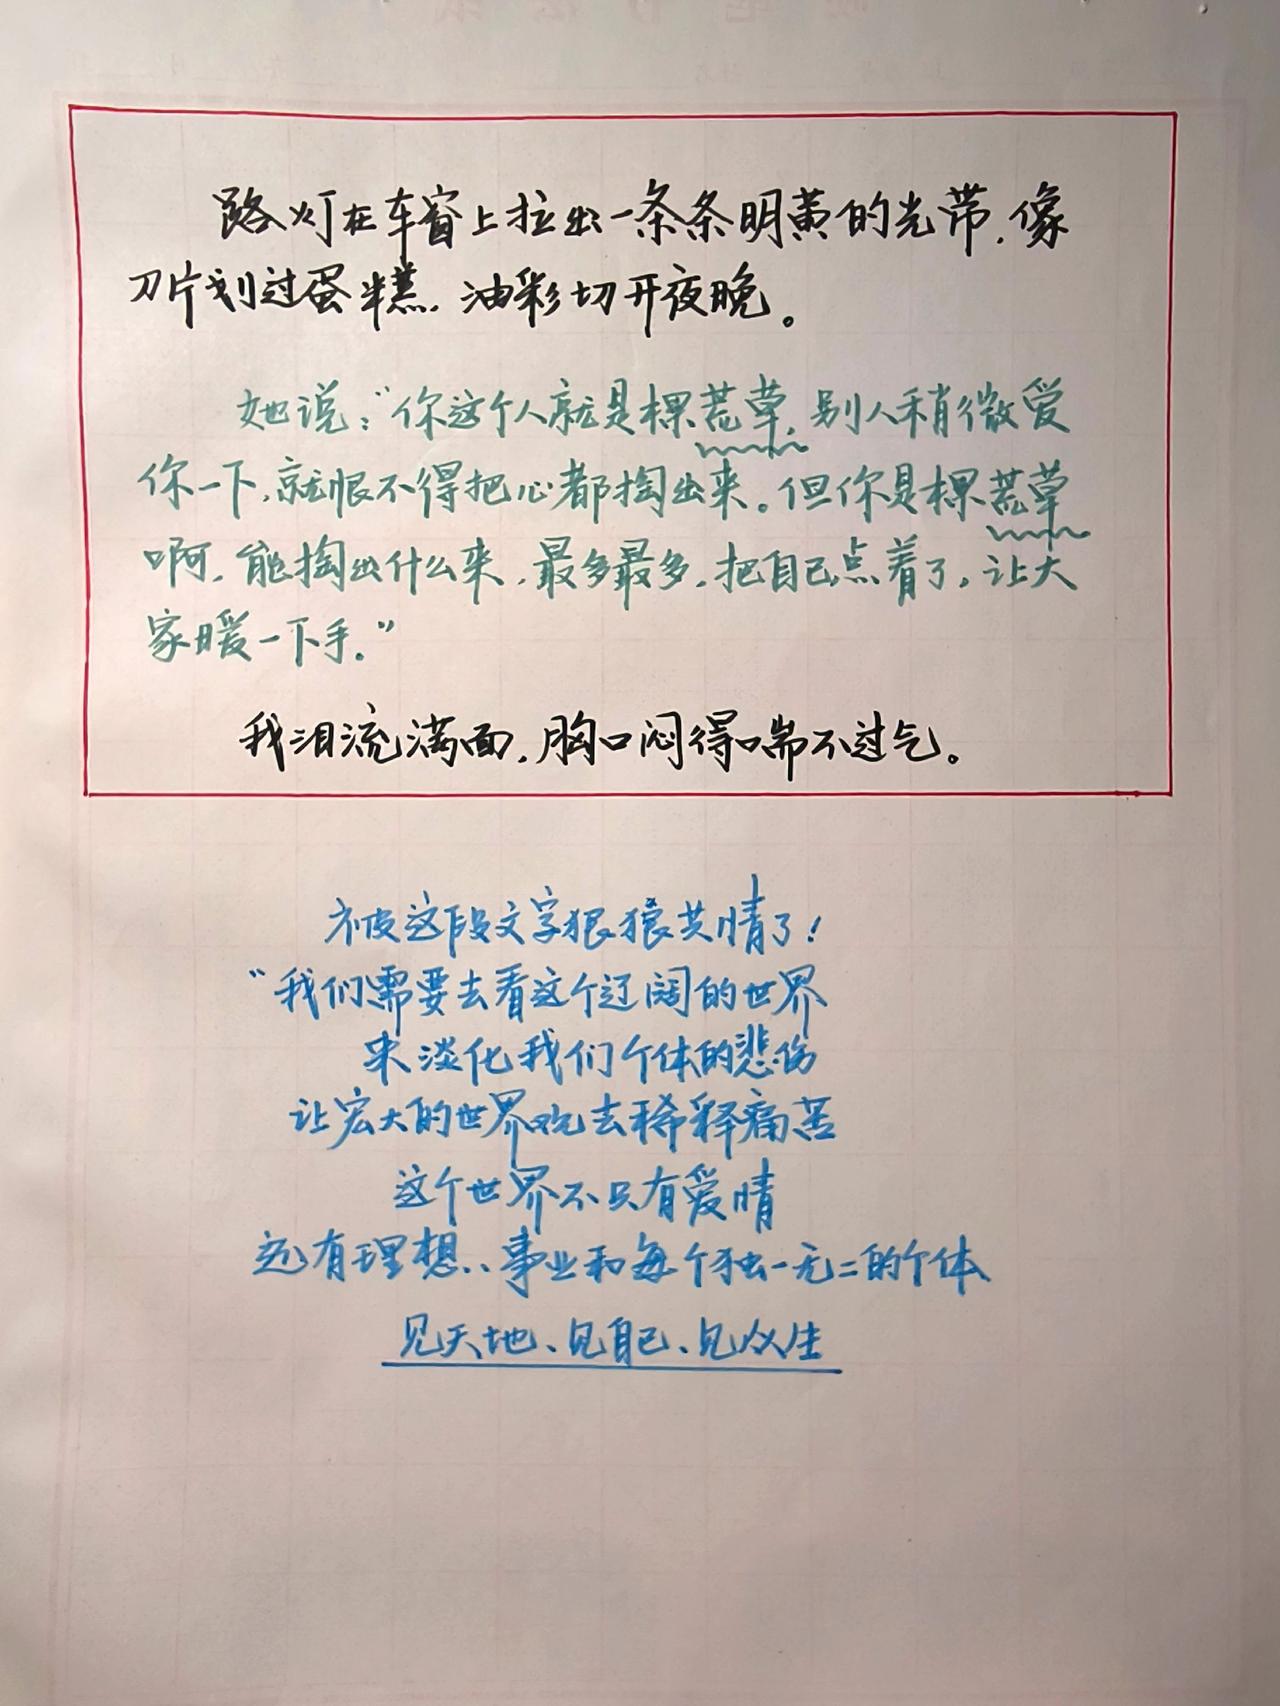 路灯在车窗上拉出一条条明黄的光带，像
刀片划过蛋糕，油彩切开夜晚。
她说：“你这个人就是棵荒草，别人稍微爱
你一下，就恨不得把心都掏出来。但你是棵荒草
啊，能掏出什么来，最多最多，把自己点着了，让大
家暖一下手。”
我泪流满面，胸口闷得喘不过气。
被这段文字狠狠共情了！
“我们需要去看这个辽阔的世界
来淡化我们个体的悲伤
让宏大的世界观去稀释痛苦
这个世界不只有爱情
还有理想、事业和每个独一无二的个体
见天地、见自己、见众生